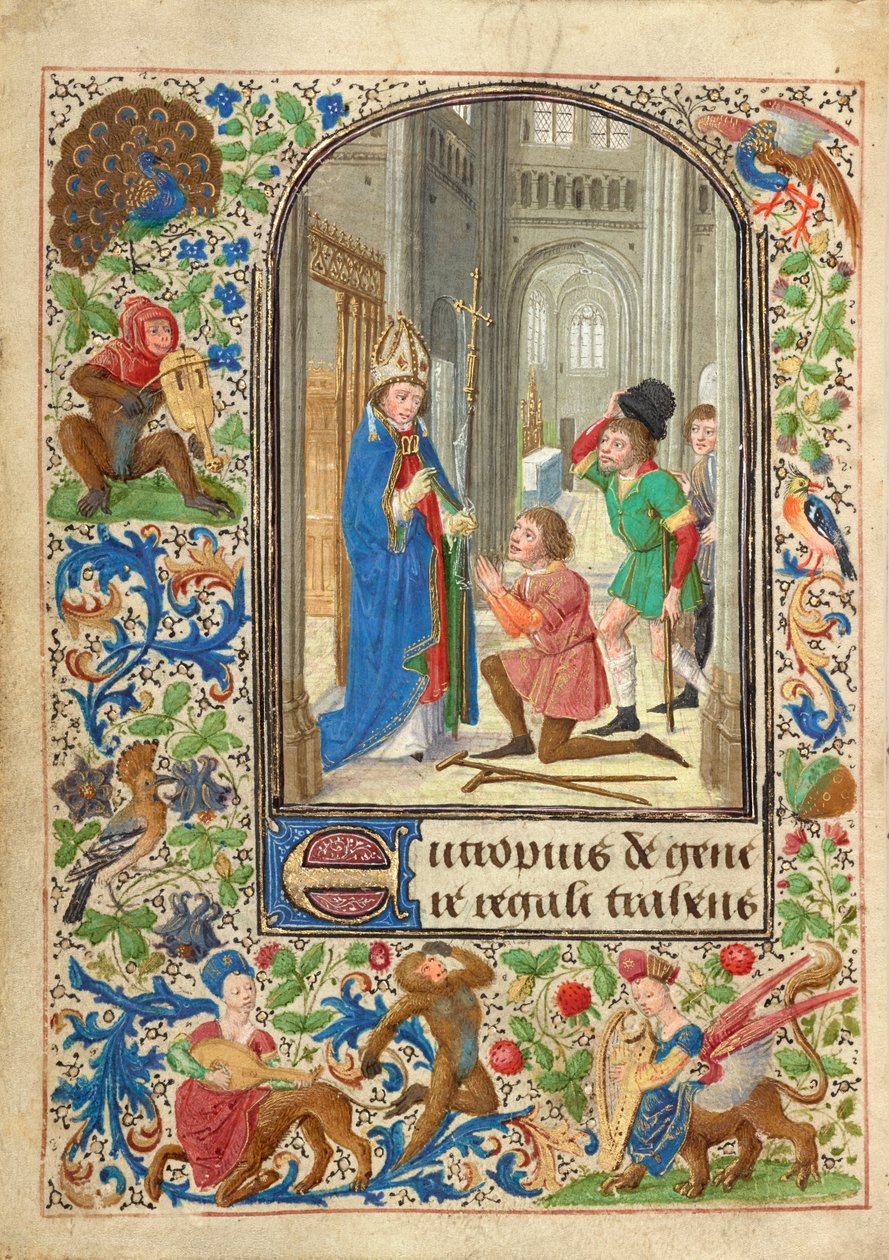 Eutropius & gene
re regali trahens